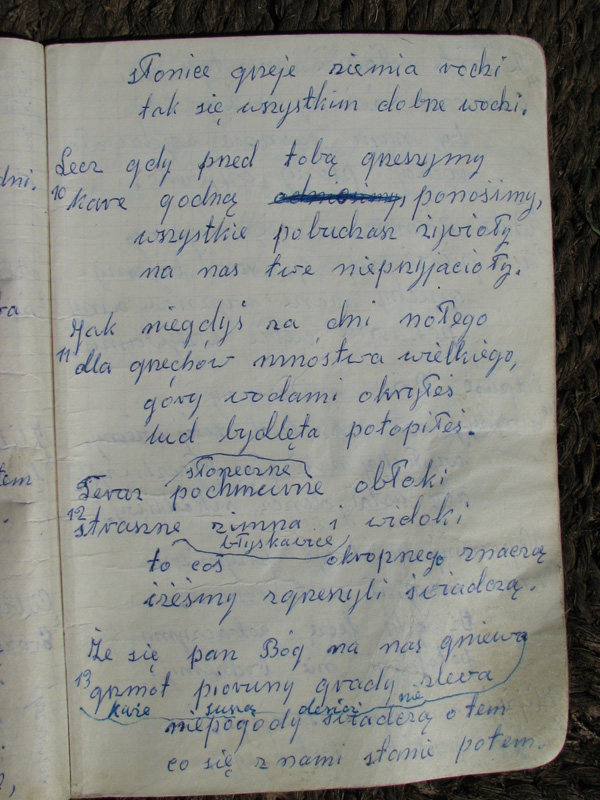 słonice grzeje ziemia rodzi
tak się wszystkim dobrze wodzi.
Lecz gdy przed tobą grzeszymy
10 karę godną odnosimy, ponosimy,
wszystkie pobudzasz żywioły
na nas twe nieprzyjacioły.
Jak niegdyś za dni nołego
11 dla grzechów mnóstwa wielkiego,
góry wodami okryłeś
lud bydlęta potopiłeś.
słoneczne
Teraz pochmurne obłoki
12 straszne zimna i widoki
błyskawice
to coś okropnego znaczą
iżeśmy zgrzeszyli świadczą.
Że się pan Bóg na nas gniewa
13 grzmot pioruny grady zlewa
karze suszą deszczi nie
niepogody świadczą o tem
co się z nami stanie potem.
dni.
tem